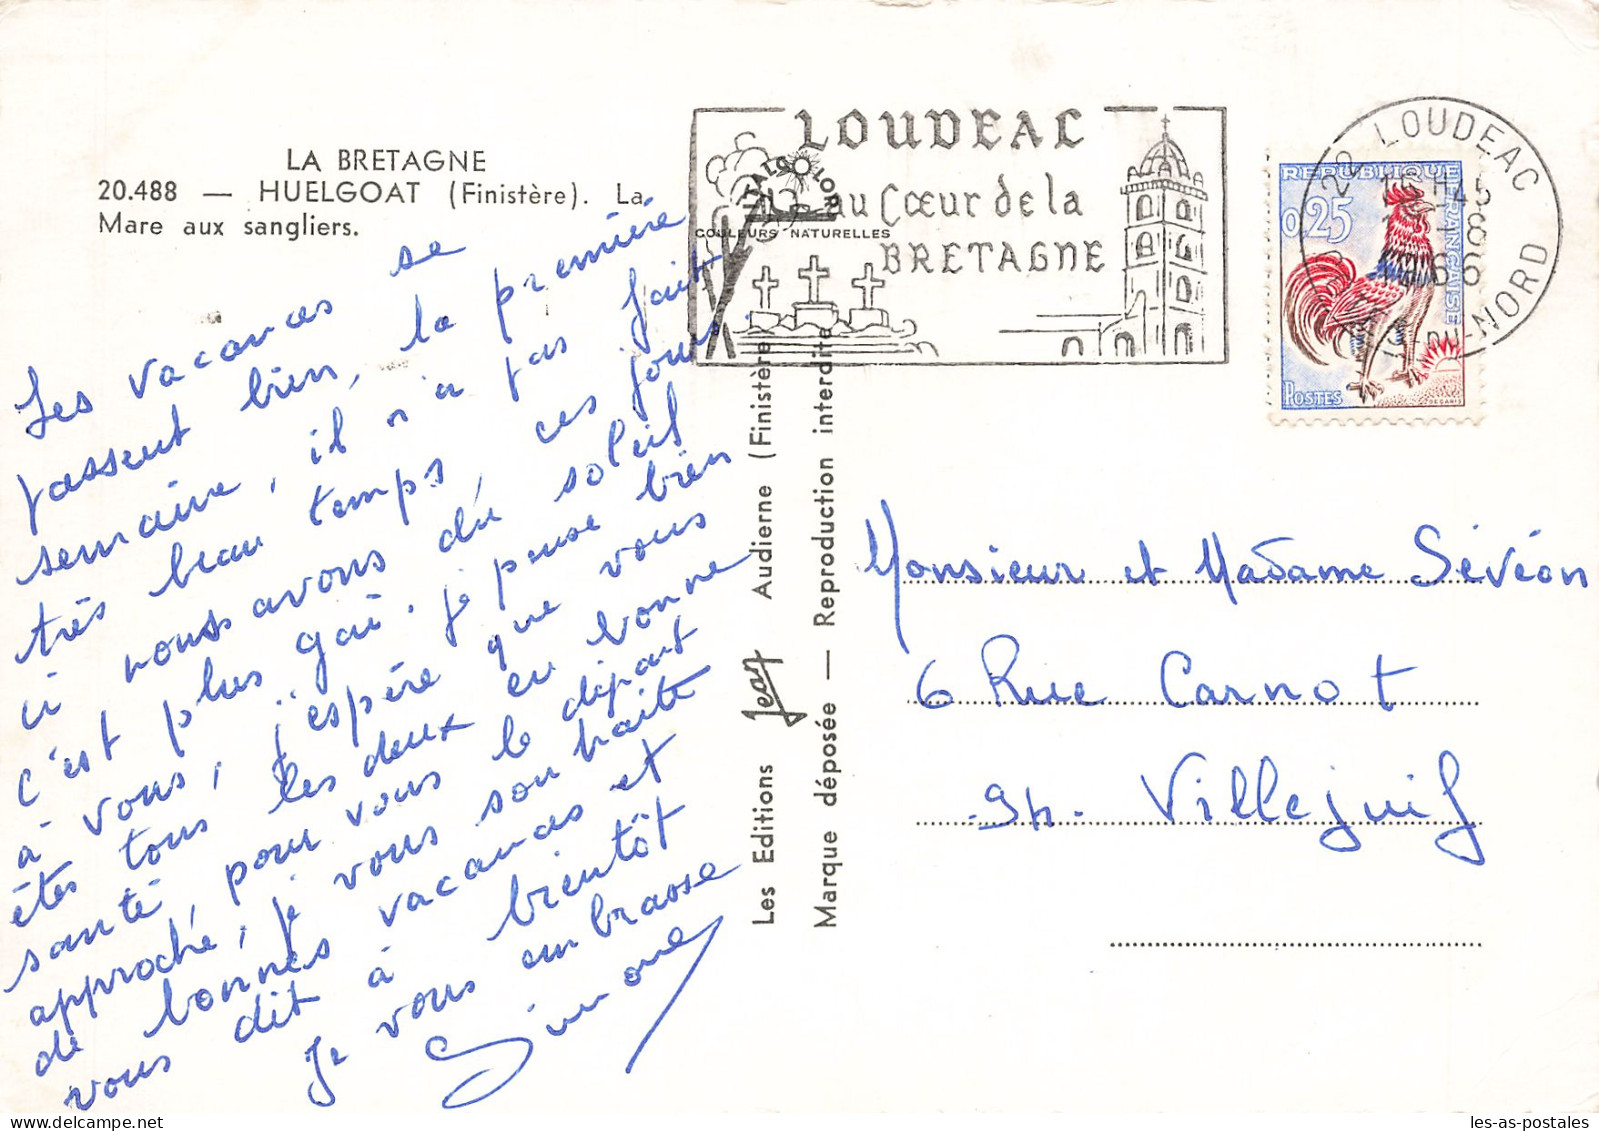 LA BRETAGNE
20.488 — HUELGOAT (Finistère). La
Mare aux sangliers.
Les vacances se
passent bien, la première
semaine, il n'a pas fait
très beau temps, ces jours
ci nous avons du soleil
c'est plus gai. je pense bien
à vous, j'espère que vous
êtes tous les deux en bonne
santé, pour vous le départ
approche, je vous souhaite
de bonnes vacances et
vous dit à bientôt
Je vous embrasse
Simone
Les Editions Jean Audierne (Finistère)
Marque déposée — Reproduction interdite
ITALCOLOR
COULEURS NATURELLES
LOUDEAC
au Cœur de la
BRETAGNE
22 LOUDEAC
16 H45
-8
1966
DU NORD
REPUBLIQUE FRANÇAISE
0,25
POSTES
DECARIS
Monsieur et Madame Sévéon
6 Rue Carnot
94. Villejuif
les-as-postales